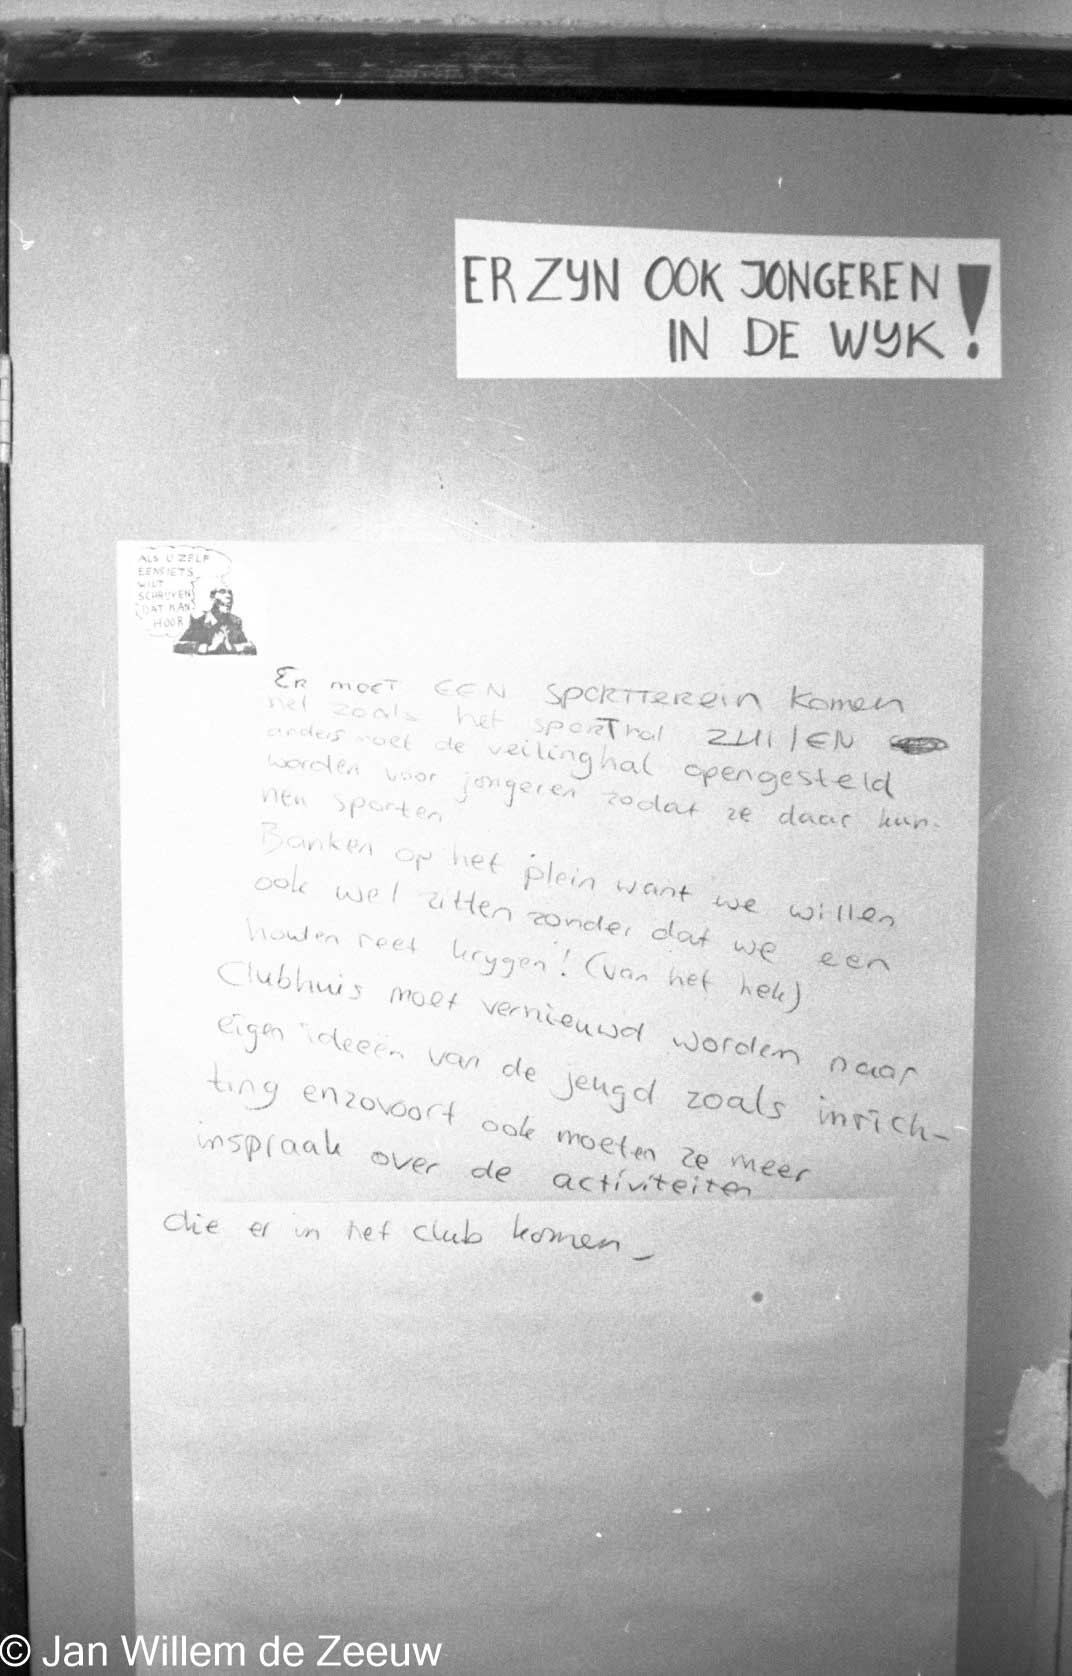 ER ZYN OOK JONGEREN
IN DE WYK!
ALS U ZELF
EENS IETS
WILT
SCHRIJVEN
DAT KAN
HOOR
ER moET EEN SPORTTERREIN komen
net zoals het sporThal ZUILEN
anders moet de veilinghal opengesteld
worden voor jongeren zodat ze daar kun-
nen sporten
Banken op het plein want we willen
ook wel zitten zonder dat we een
houten reet krygen! (van het hek)
Clubhuis moet vernieuwd worden naar
eigen ideeën van de jeugd zoals inrich-
ting enzovoort ook moeten ze meer
inspraak over de activiteiten
die er in het club komen_
© Jan Willem de Zeeuw